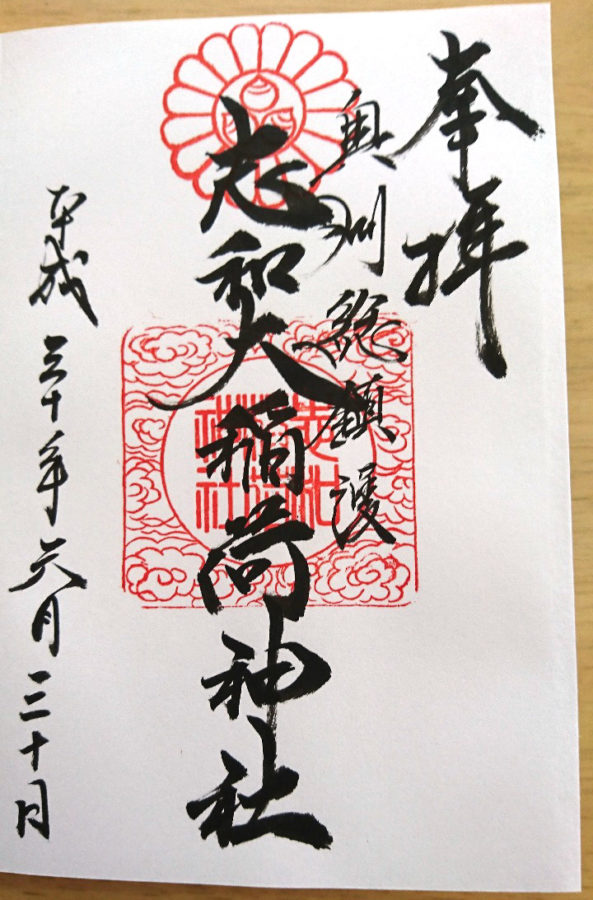 奉拝
奥州総鎮護
志和大稲荷神社
平成三十年六月三十日